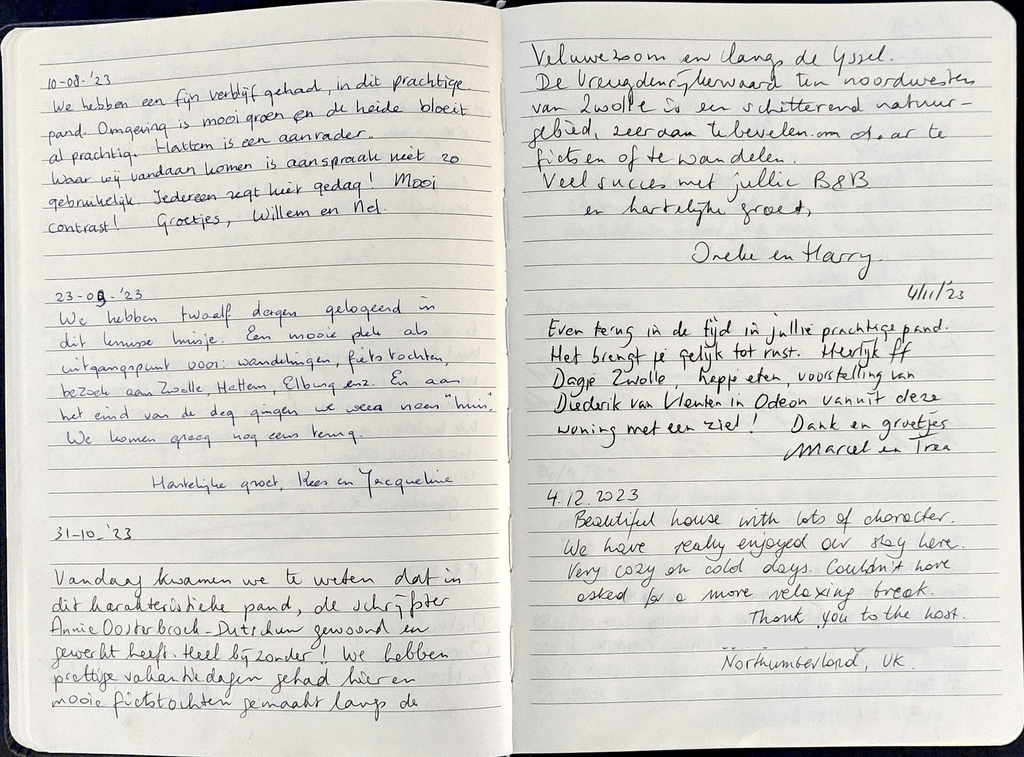 10-08-'23
We hebben een fijn verblijf gehad, in dit prachtige
pand. Omgeving is mooi groen en de heide bloeit
al prachtig. Hattem is een aanrader.
Waar wij vandaan komen is aanspraak niet zo
gebruikelijk. Iedereen zegt hier gedag! Mooi
contrast! Groetjes, Willem en Nel.
23-09-'23
We hebben twaalf dagen gelogeerd in
dit knusse huisje. Een mooie plek als
uitgangspunt voor: wandelingen, fietstochten,
bezoek aan Zwolle, Hattem, Elburg enz. En aan
het eind van de dag gingen we weer naar "huis".
We komen graag nog eens terug.
Hartelijke groet, Kees en Jacqueline
31-10-'23
Vandaag kwamen we te weten dat in
dit karakteristieke pand, de schrijfster
Annie Oosterbroek-Dutschun gewoond en
gewerkt heeft. Heel bijzonder! We hebben
prettige vakantiedagen gehad hier en
mooie fietstochten gemaakt langs de
Veluwezoom en langs de Yssel.
De Vreugderijkerwaard ten noordwesten
van Zwolle is een schitterend natuur-
gebied, zeer aan te bevelen om daar te
fietsen of te wandelen.
Veel succes met jullie B&B
en hartelijke groet,
Ineke en Harry
4/11/'23
Even terug in de tijd in jullie prachtige pand.
Het brengt je gelijk tot rust. Heerlijk ff
Dagje Zwolle, hapje eten, voorstelling van
Diederik van Vleuten in Odeon vanuit deze
woning met een ziel! Dank en groetjes
Marcel en Trea
4.12.2023
Beautiful house with lots of character.
We have really enjoyed our stay here.
Very cozy on cold days. Couldn't have
asked for a more relaxing break.
Thank you to the host.
Northumberland, UK.